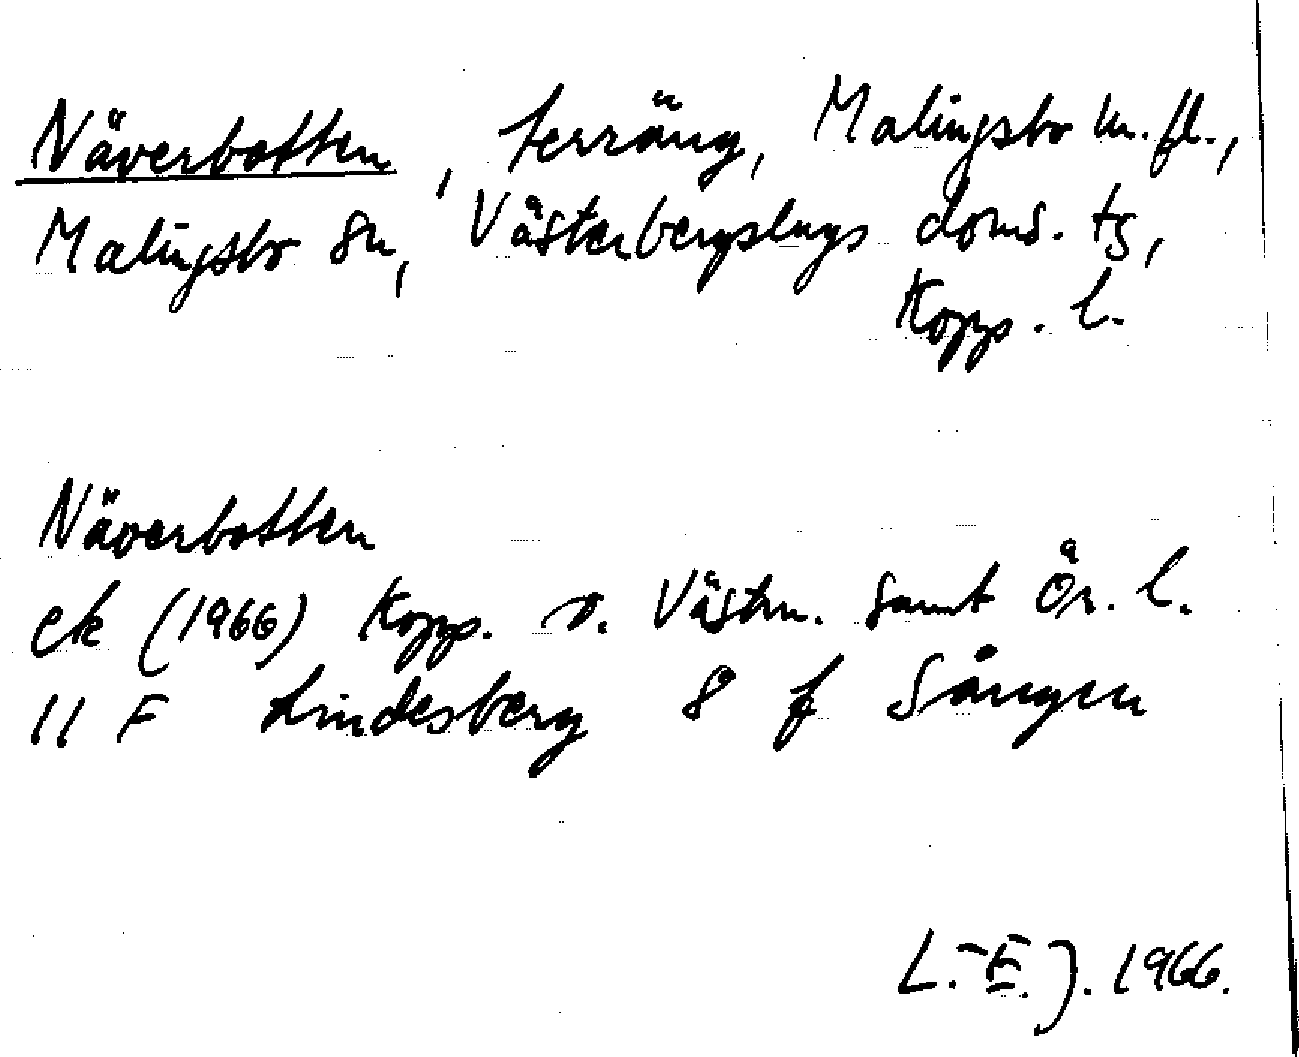 Näverbotten, terräng, Malingsbo m. fl.,
Malingsbo sn, Västerbergslags doms. tg,
Kopp. l.
Näverbotten
ek (1966) Kopp. o. Västm. samt Ör. l.
11 F Lindesberg 8 f Sången
L.-E. J. 1966.